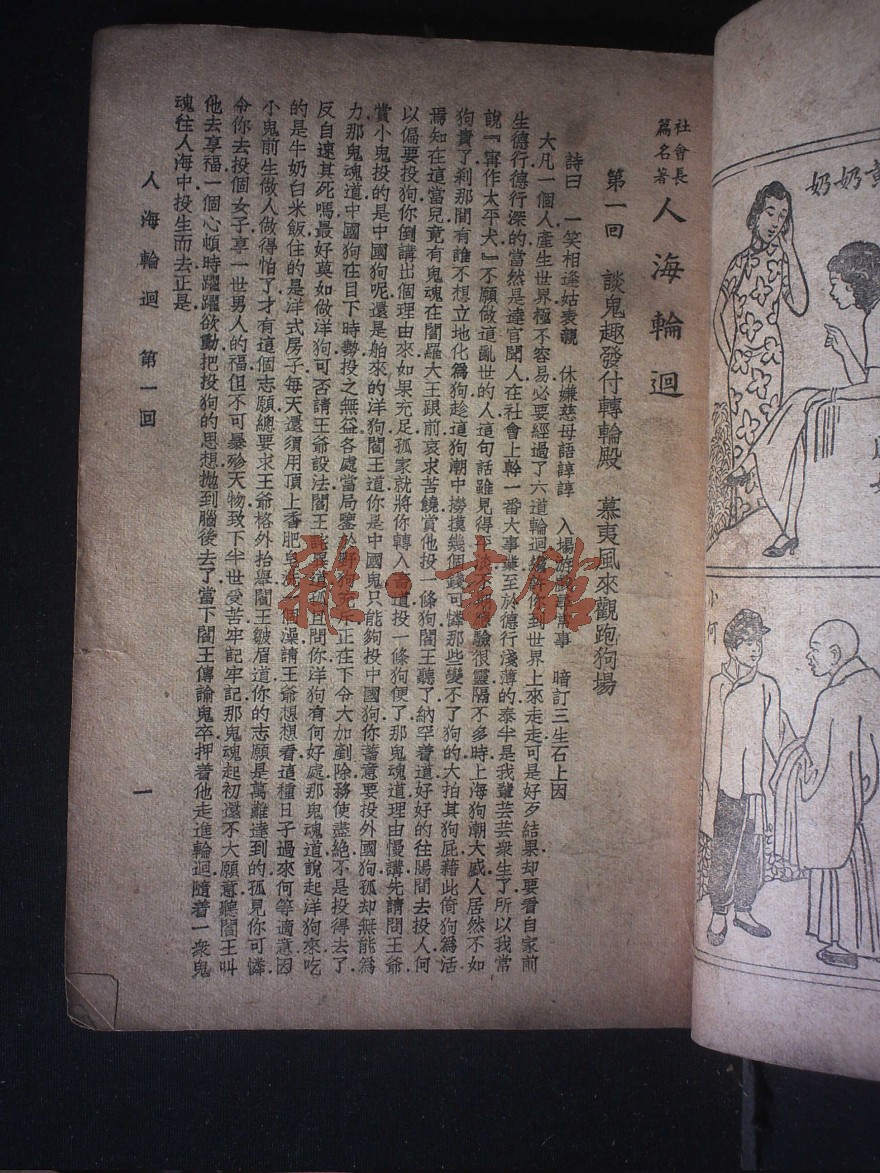 社會長
篇名著
人海輪迴
第一回　談鬼趣發付轉輪殿　慕夷風來觀跑狗場
詩曰　一笑相逢姑表親　休嫌慈母語諄諄　入場　事　暗訂三生石上因
大凡一個人產生世界極不容易必要經過了六道輪迴纔許你到世界上來走走可是好歹結果却要看自家前
生德行德行深的當然是達官聞人在社會上幹一番大事業至於德行淺薄的泰半是我輩芸芸衆生了所以我常
說『寗作太平犬』不願做這亂世的人這句話雖見得平淡不　驗很靈隔不多時上海狗潮大盛人居然不如
狗貴了刹那間有誰不想立地化爲狗趁這狗潮中撈摸幾個錢可憐那些變不了狗的大拍其狗屁藉此倚狗爲活
焉知在這當兒竟有鬼魂在閻羅大王跟前哀求苦饒賞他投一條狗閻王聽了納罕着道好好的往陽間去投人何
以偏要投狗你倒講出個理由來如果充足孤家就將你轉入畜道投一條狗便了那鬼魂道理由慢講先請問王爺
賞小鬼投的是中國狗呢還是舶來的洋狗閻王道你是中國鬼只能夠投中國狗你蓄意要投外國狗孤却無能爲
力那鬼魂道中國狗在目下時勢投之無益各處當局鑒於野狗充斥正在下令大加剷除務使盡絕不是投得去了
反自速其死嗎最好莫如做洋狗可否請王爺設法閻王詫異道孤且問你洋狗有何好處那鬼魂道說起洋狗來吃
的是牛奶白米飯住的是洋式房子每天還須用頂上香肥皂洗個澡請王爺想想看這種日子過來何等適意因
小鬼前生做人做得怕了才有這個志願總要求王爺格外抬舉閻王皺眉道你的志願是萬難達到的孤見你可憐
令你去投個女子享一世男人的福但不可暴殄天物致下半世受苦牢記牢記那鬼魂起初還不大願意聽閻王叫
他去享福一個心頓時躍躍欲動把投狗的思想拋到腦後去了當下閻王傳諭鬼卒押着他走進輪迴隨着一衆鬼
魂往人海中投生而去正是
人海輪迴　第一回
一
奶奶黃
小何